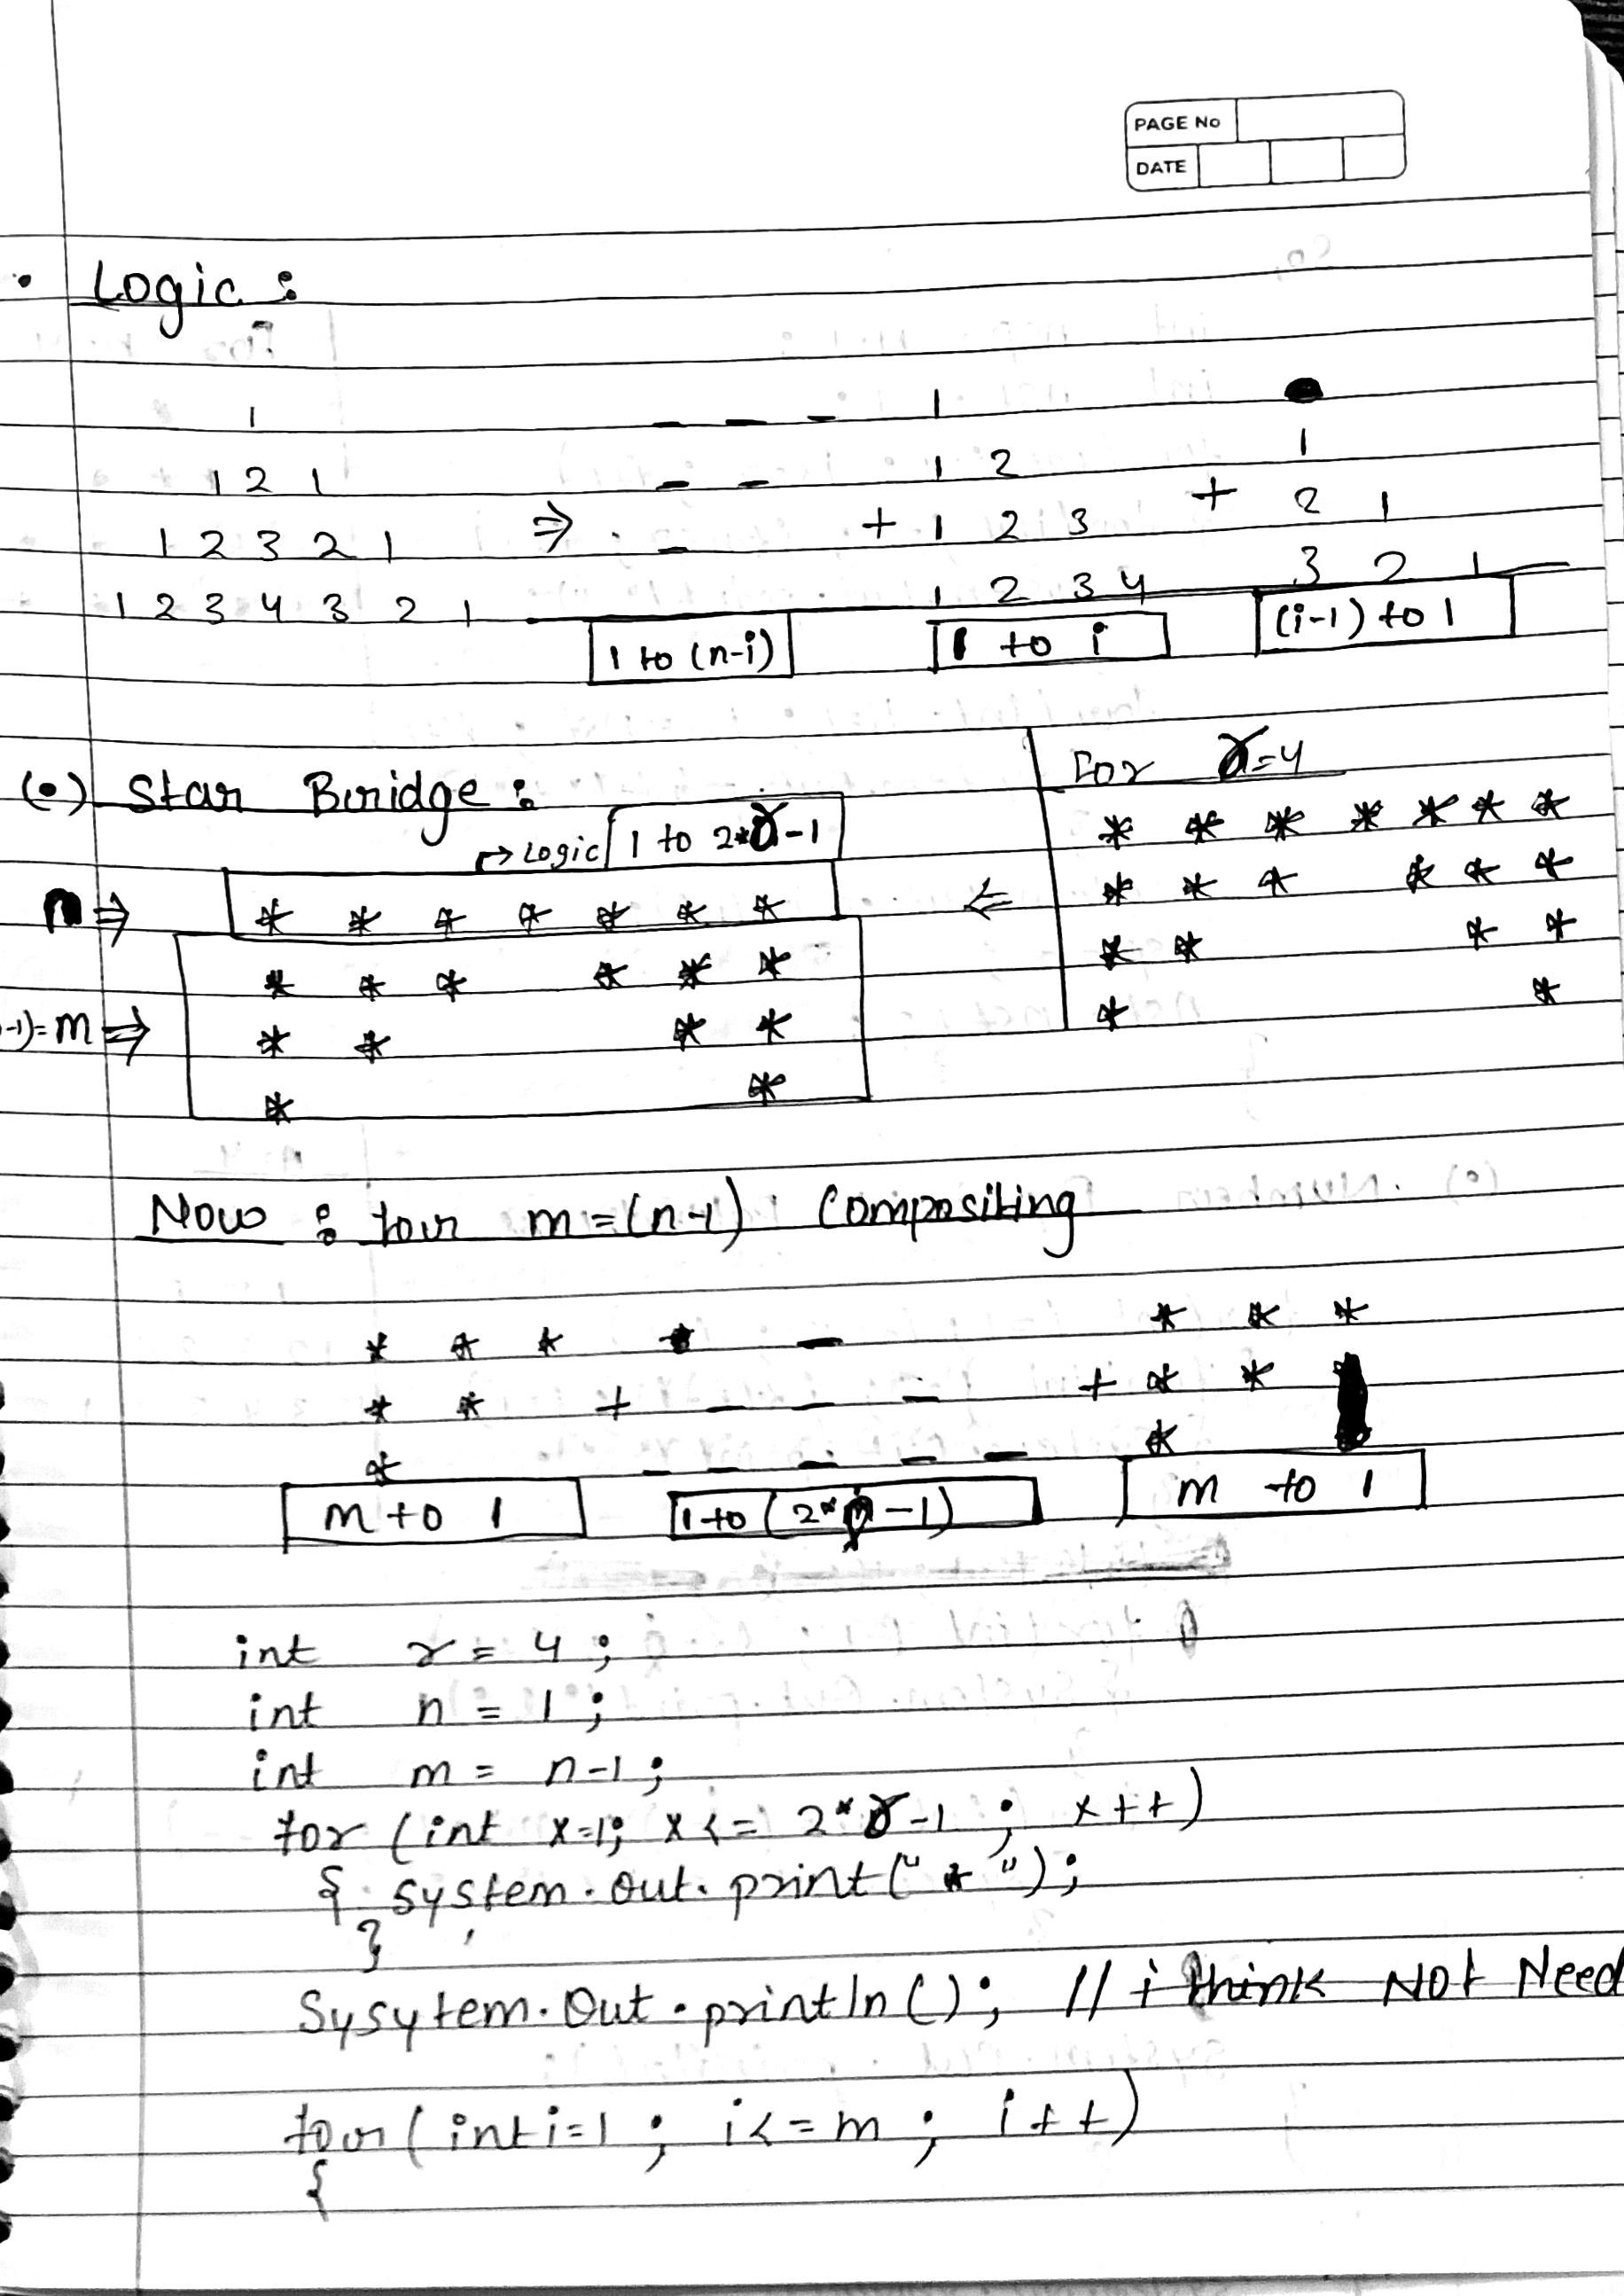 PAGE No
DATE
• Logic :
1 _ _ _ 1
1 2 1 _ _ 1 2 1
1 2 3 2 1 ⇒ _ + 1 2 3 + 2 1
1 2 3 4 3 2 1 1 2 3 4 3 2 1
1 to (n-i) 1 to i (i-1) to 1
(•) Star Bridge :
For r=4
→ Logic 1 to 2*r-1
* * * * * * *
n ⇒ * * * * * * * ⇐ * * * * * *
* * * * * * * * * *
-1)=m ⇒ * * * * * *
* *
Now : for m=(n-1) Compositing
* * * _ * * *
* * + _ _ _ + * *
* _ _ _ _ _ *
m to 1 1 to (2* -1) m to 1
int r = 4 ;
int n = 1 ;
int m = n-1 ;
for (int x=1; x <= 2*r-1 ; x++)
{ System.out.print("*");
}
Sysytem.Out.println(); // i think Not Need
for(int i=1 ; i<=m ; i++)
{